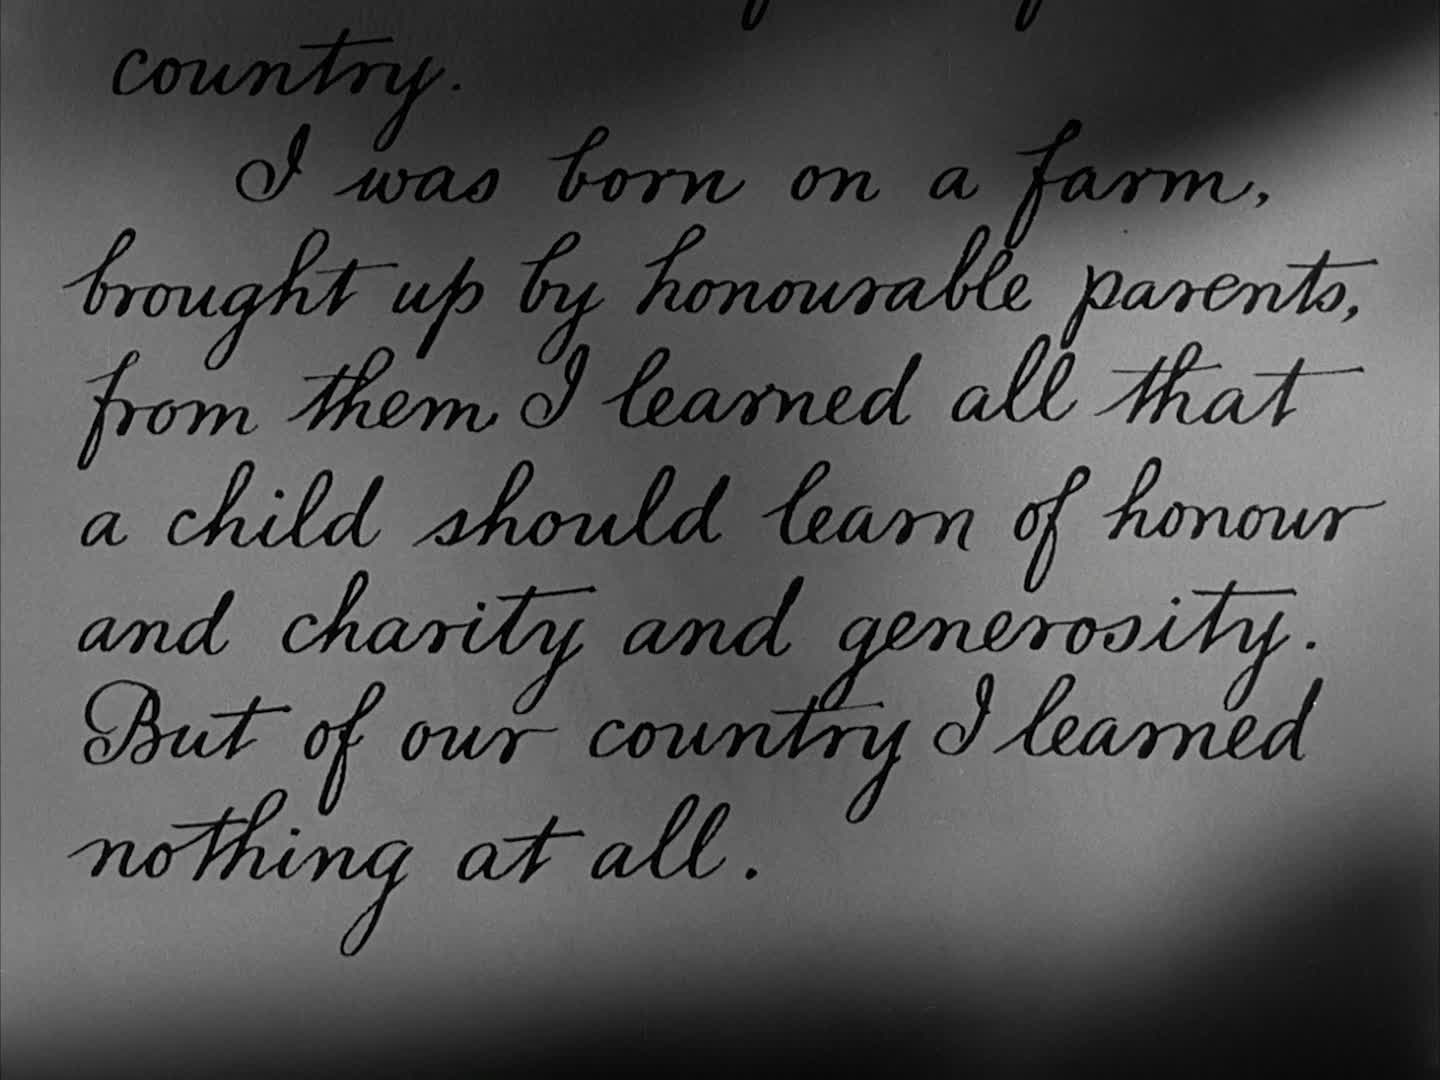 country.
I was born on a farm,
brought up by honourable parents,
from them I learned all that
a child should learn of honour
and charity and generosity.
But of our country I learned
nothing at all.